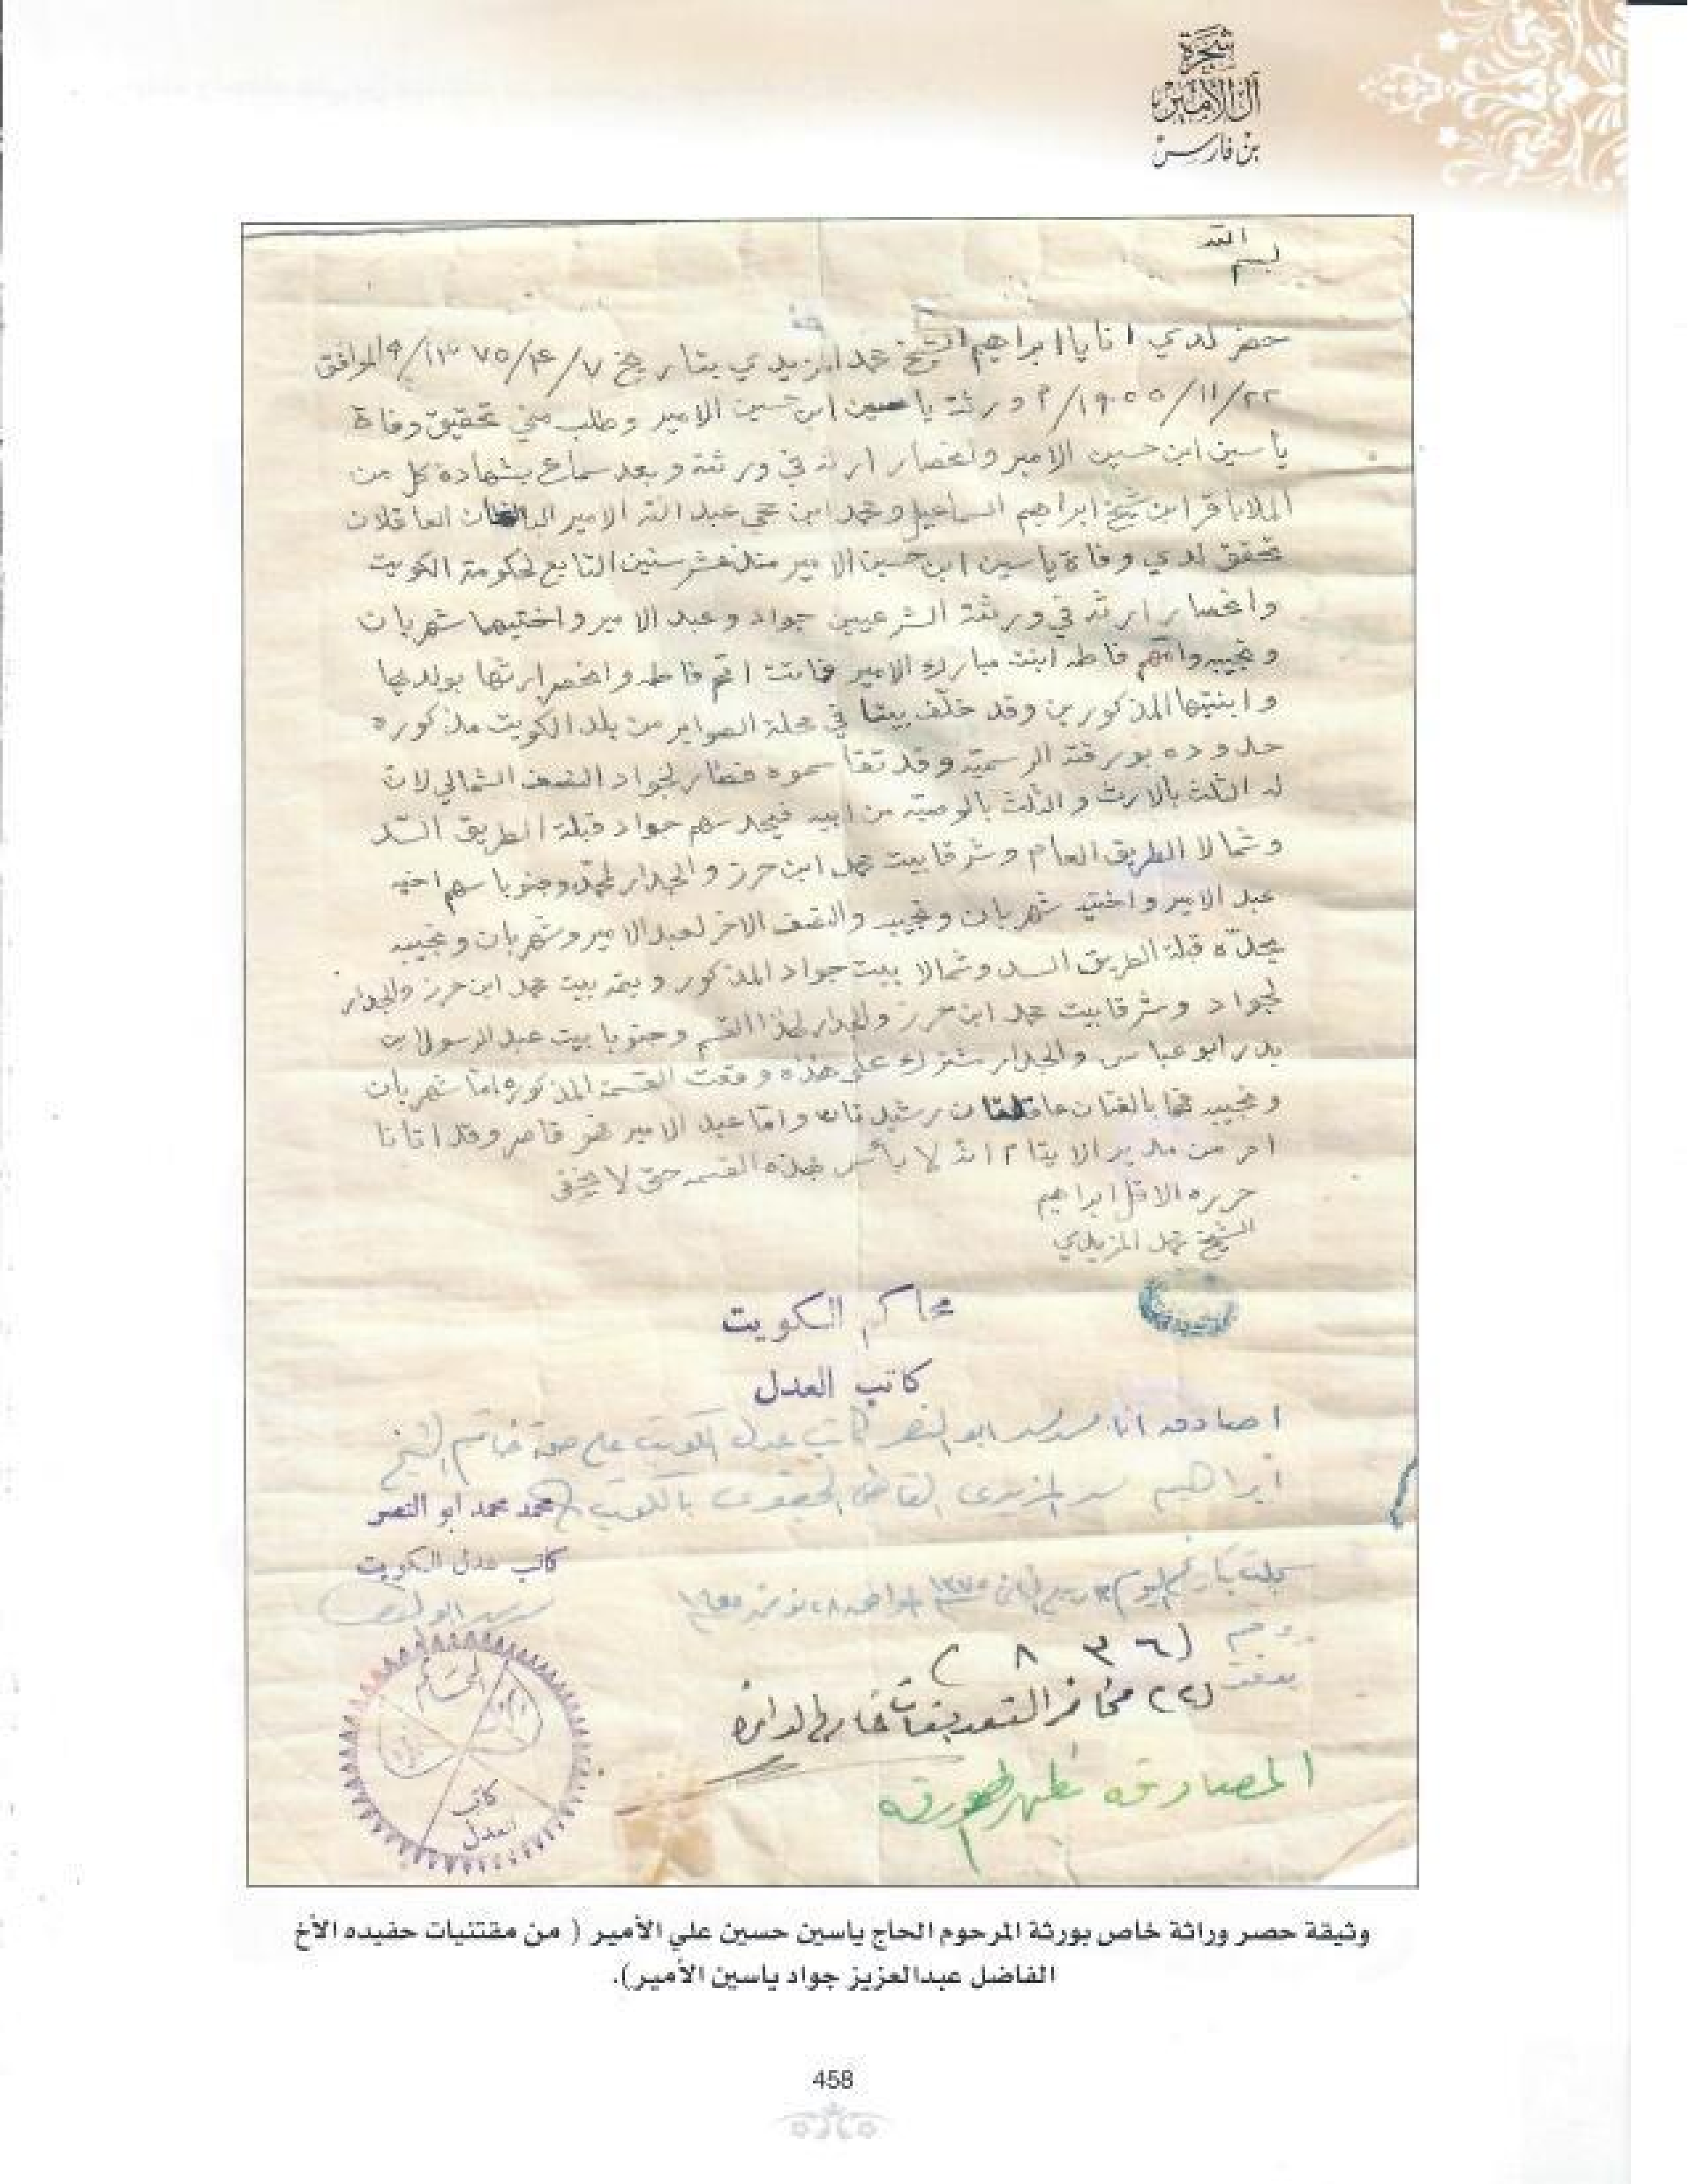 شجرة
آل الأمير
بن فارس
بسم الله
حضر لدي انا يا ابراهيم الشيخ محمد المزيدي بتاريخ ٧/٤/١٣٧٥ هـ الموافق
٢٢/١١/١٩٥٥ م ورثة ياسين ابن حسين الامير وطلب مني تحقيق وفاة
ياسين ابن حسين الامير وانحصار ارثه في ورثته وبعد سماع بشهادة كل من
الملا باقر ابن شيخ ابراهيم السماعيل ومحمد ابن حجي عبد الله الامير البالغان العاقلان
تحقق لدي وفاة ياسين ابن حسين الامير منذ عشر سنين التابع لحكومة الكويت
وانحصار ارثه في ورثته الشرعيين جواد وعبد الامير واختيهما شهربان
ونجيبه وامهم فاطمه ابنت مبارك الامير فماتت امهم فاطمه وانحصر ارثها بولديها
وابنتيها المذكورين وقد خلف بيتا في محلة الصوابر من بلد الكويت مذكوره
حدوده بورقته الرسمية وقد تقاسموه فصار لجواد النصف الشمالي لان
له الثلث بالارث والثلث بالوصية من ابيه فيحد سهم جواد قبلة الطريق السد
وشمالا الطريق العام وشرقا بيت محمد ابن حرز والجدار لمحمد وجنوبا سهم اخيه
عبد الامير واختيه شهربان ونجيبه والنصف الاخر لعبد الامير وشهربان ونجيبه
يحده قبلة الطريق السد وشمالا بيت جواد المذكور وبيت محمد ابن حرز والجدار
لجواد وشرقا بيت محمد ابن حرز والجدار لهذا القسم وجنوبا بيت عبد الرسول ابن
بدر ابو عباس والجدار مشترك على هذه وقعت القسمة المذكوره اما شهربان
ونجيبه فهما بالغتان عاقلتان رشيدتان واما عبد الامير فهو قاصر وقد اتانا
امر من مدير الايتام انه لا بأس بهذه القسمه حتى لا يخفى
حرره الاقل ابراهيم
الشيخ محمد المزيدي
محاكم الكويت
كاتب العدل
اصادق انا محمد محمد ابو النصر كاتب عدل الكويت على صحة خاتم الشيخ
ابراهيم محمد المزيدي القاضي الجعفري بالكويت
محمد محمد ابو النصر
كاتب عدل الكويت
سجلت بتاريخ اليوم ١٣ ربيع الثاني ١٣٧٥ الموافق ٢٨ نوفمبر ١٩٥٥
برقم (٨٣٦)
بصفحة (٢٢) محاضر التصديقات خارج الدائرة
المصادقه بظهر الورقه
المحاكم
كاتب
العدل
وثيقة حصر وراثة خاص بورثة المرحوم الحاج ياسين حسين علي الأمير ( من مقتنيات حفيده الأخ
الفاضل عبدالعزيز جواد ياسين الأمير).
458